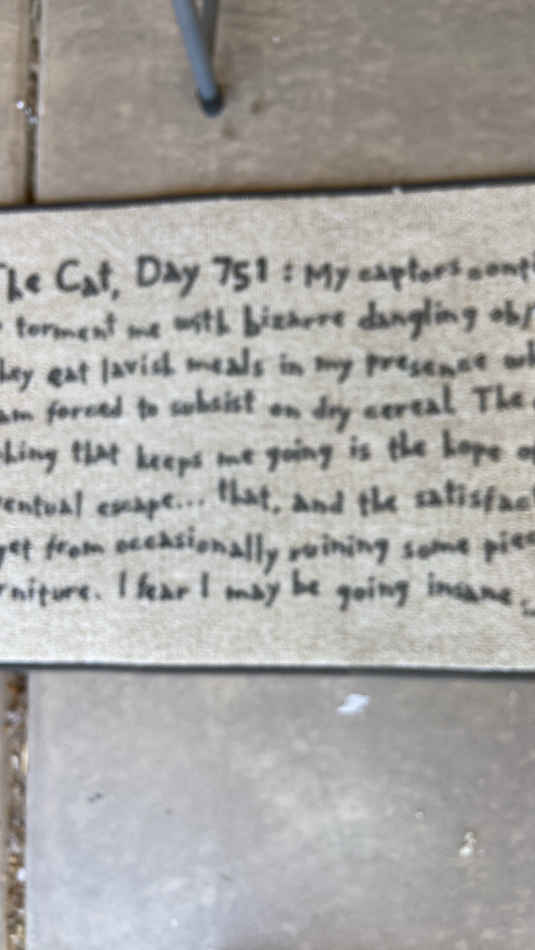 The Cat, Day 751: My captors conti
torment me with bizarre dangling obj
hey eat lavish meals in my presence wh
am forced to subsist on dry cereal. The
hing that keeps me going is the hope of
entual escape... that, and the satisfact
get from occasionally ruining some piec
rniture. I fear I may be going insane.